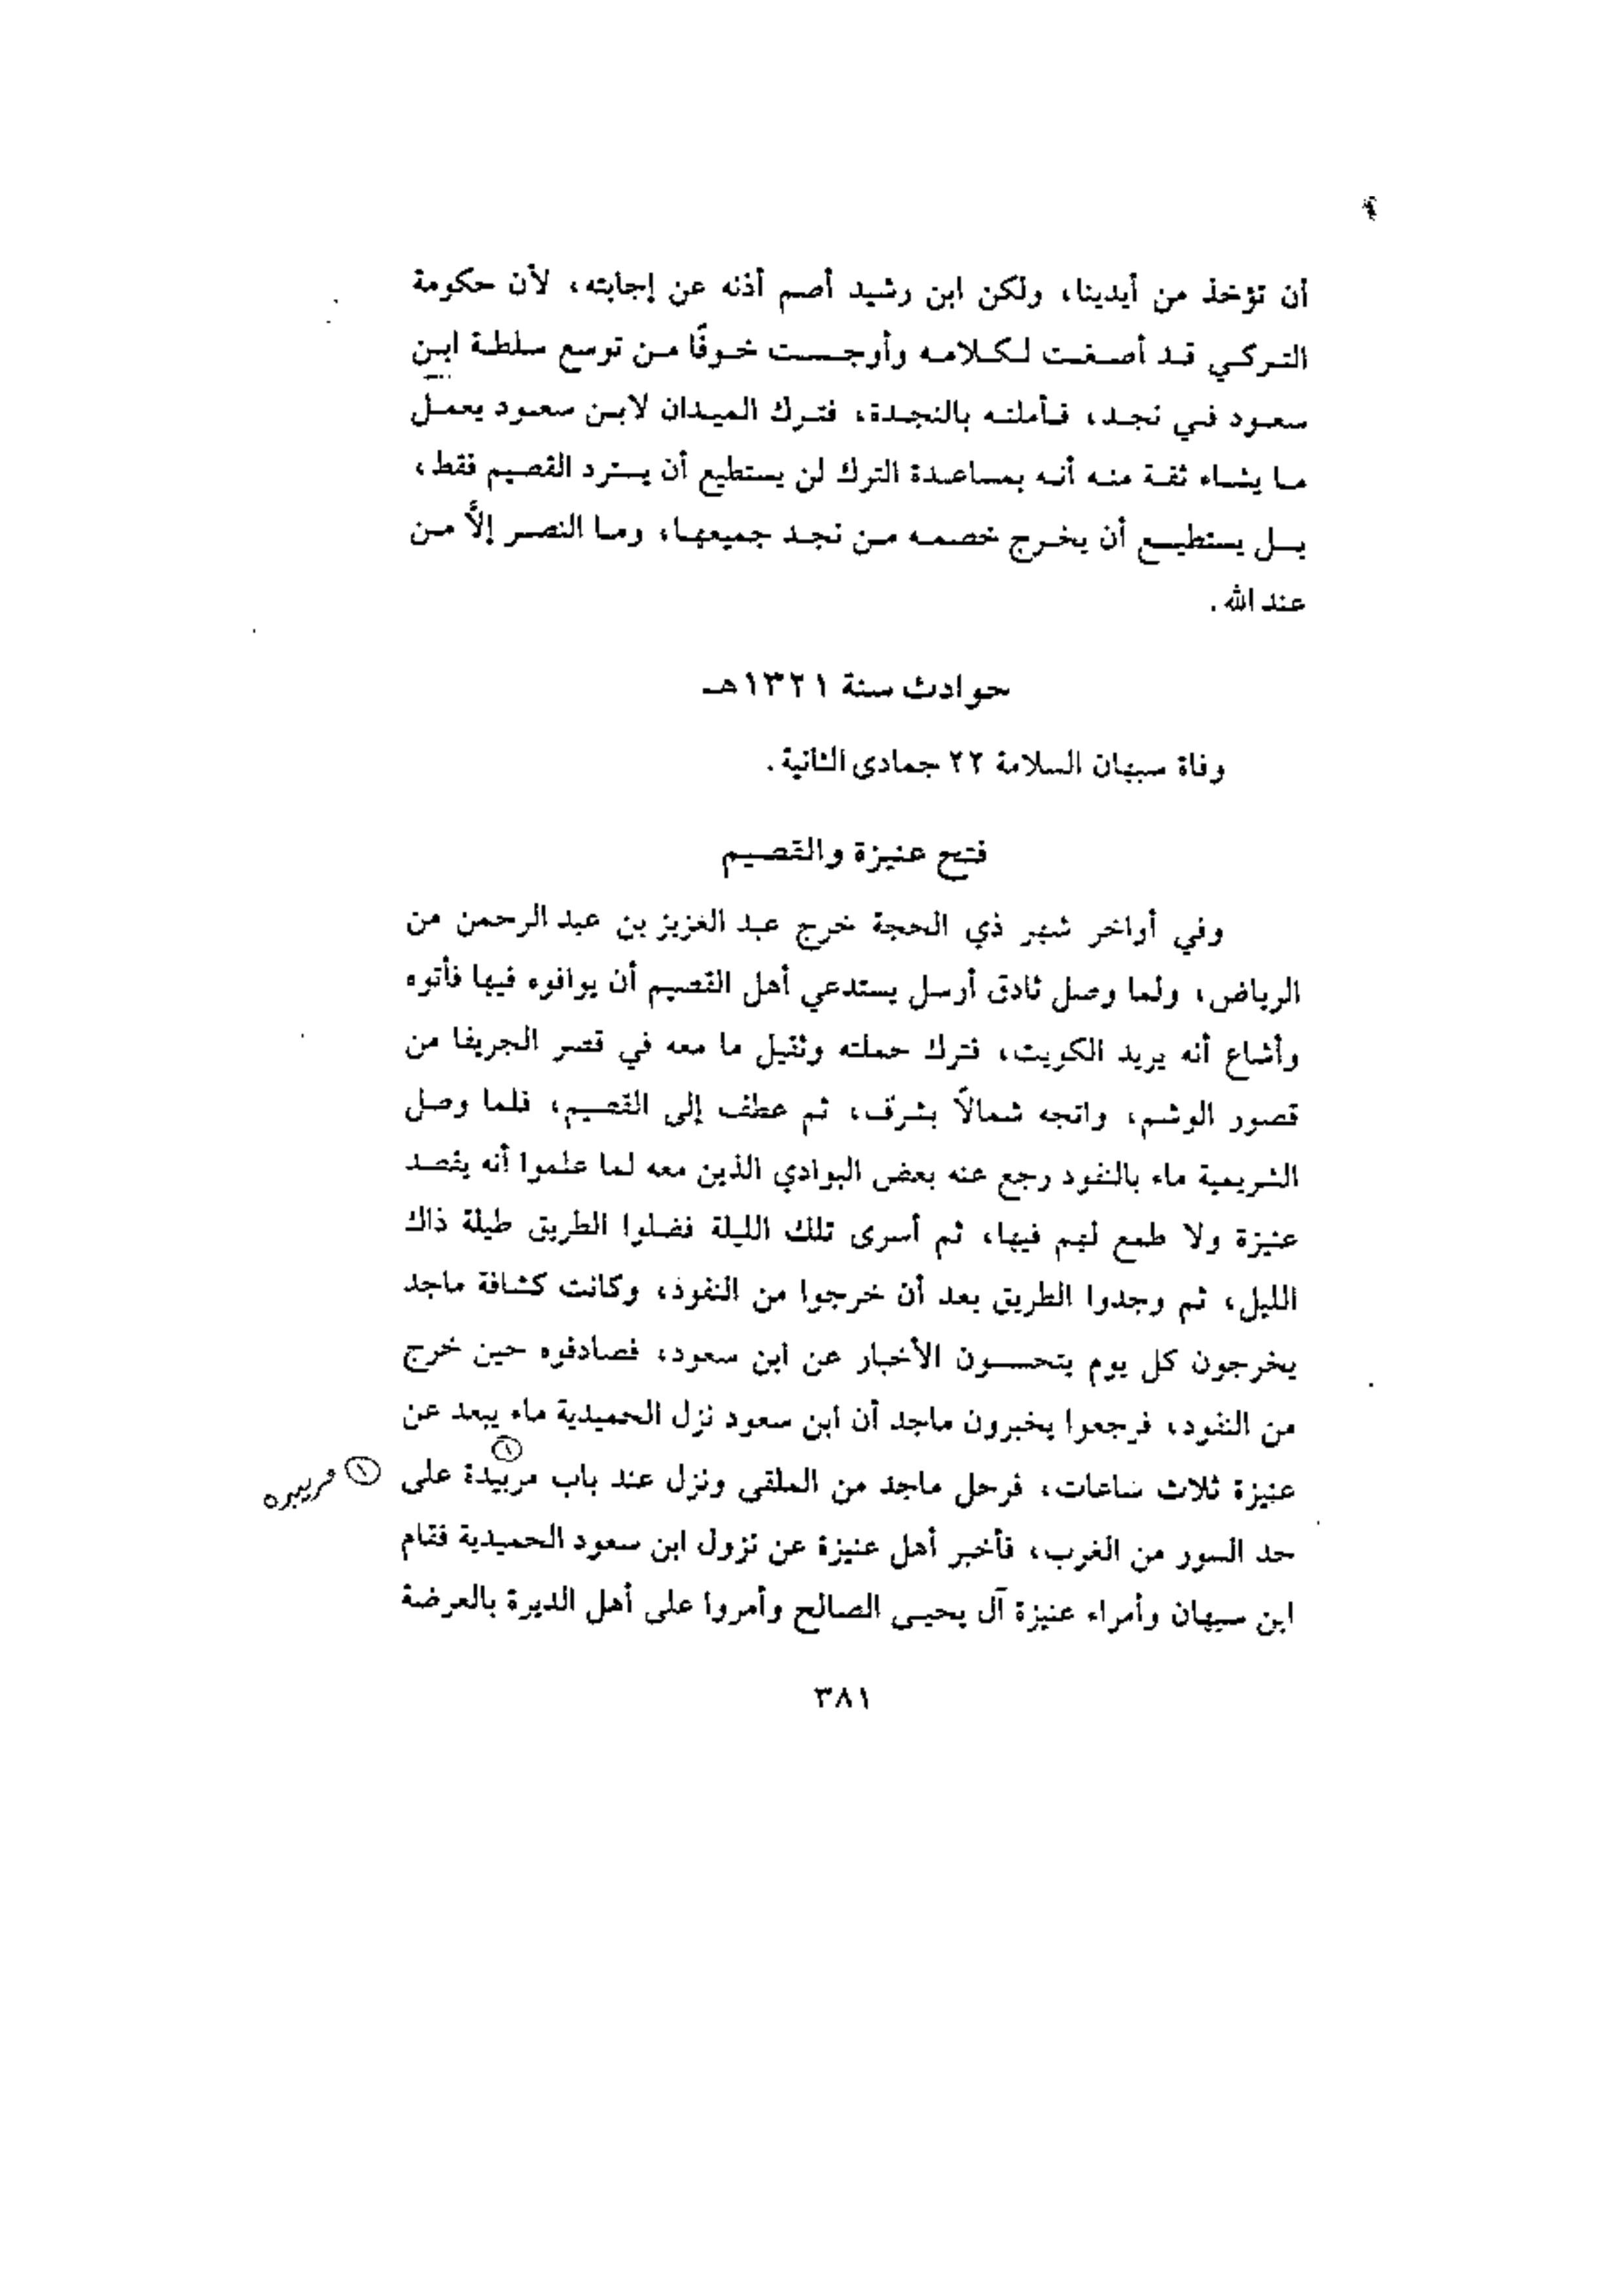 أن تؤخذ من أيدينا، ولكن ابن رشيد أصم أذنه عن إجابته، لأن حكومة
التركي قد أصغت لكلامه وأوجست خوفًا من توسع سلطة ابن
سعود في نجد، فأملته بالنجدة، فترك الميدان لابن سعود يعمل
ما يشاء ثقة منه أنه بمساعدة الترك لن يستطيع أن يسترد القصيم فقط،
بل يستطيع أن يخرج خصمه من نجد جميعها، وما النصر إلاَّ من
عند الله.
حوادث سنة ١٣٢١هـ
وفاة سبهان السلامة ٢٢ جمادى الثانية.
فتح عنيزة والقصيم
وفي أواخر شهر ذي الحجة خرج عبد العزيز بن عبد الرحمن من
الرياض، ولما وصل ثادق أرسل يستدعي أهل القصيم أن يوافوه فيها فأتوه
وأشاع أنه يريد الكويت، فترك حملته وثقيل ما معه في قصر الجريفا من
قصور الوشم، واتجه شمالاً بشرق، ثم عطف إلى القصيم، فلما وصل
الشريمية ماء بالنفود رجع عنه بعض البوادي الذين معه لما علموا أنه يقصد
عنيزة ولا طمع لهم فيها، ثم أسرى تلك الليلة فضلوا الطريق طيلة ذاك
الليل، ثم وجدوا الطريق بعد أن خرجوا من النفوذ، وكانت كشافة ماجد
يخرجون كل يوم يتحسسون الأخبار عن ابن سعود، فصادفوه حين خرج
من النفود، فرجعوا يخبرون ماجد أن ابن سعود نزل الحميدية ماء يبعد عن
عنيزة ثلاث ساعات، فرحل ماجد من الملقى ونزل عند باب مربيدة (١) على
(١)
حد السور من الغرب، فأخبر أهل عنيزة عن نزول ابن سعود الحميدية فقام
ابن سبهان وأمراء عنيزة آل يحيى الصالح وأمروا على أهل الديرة بالعرضة
٣٨١